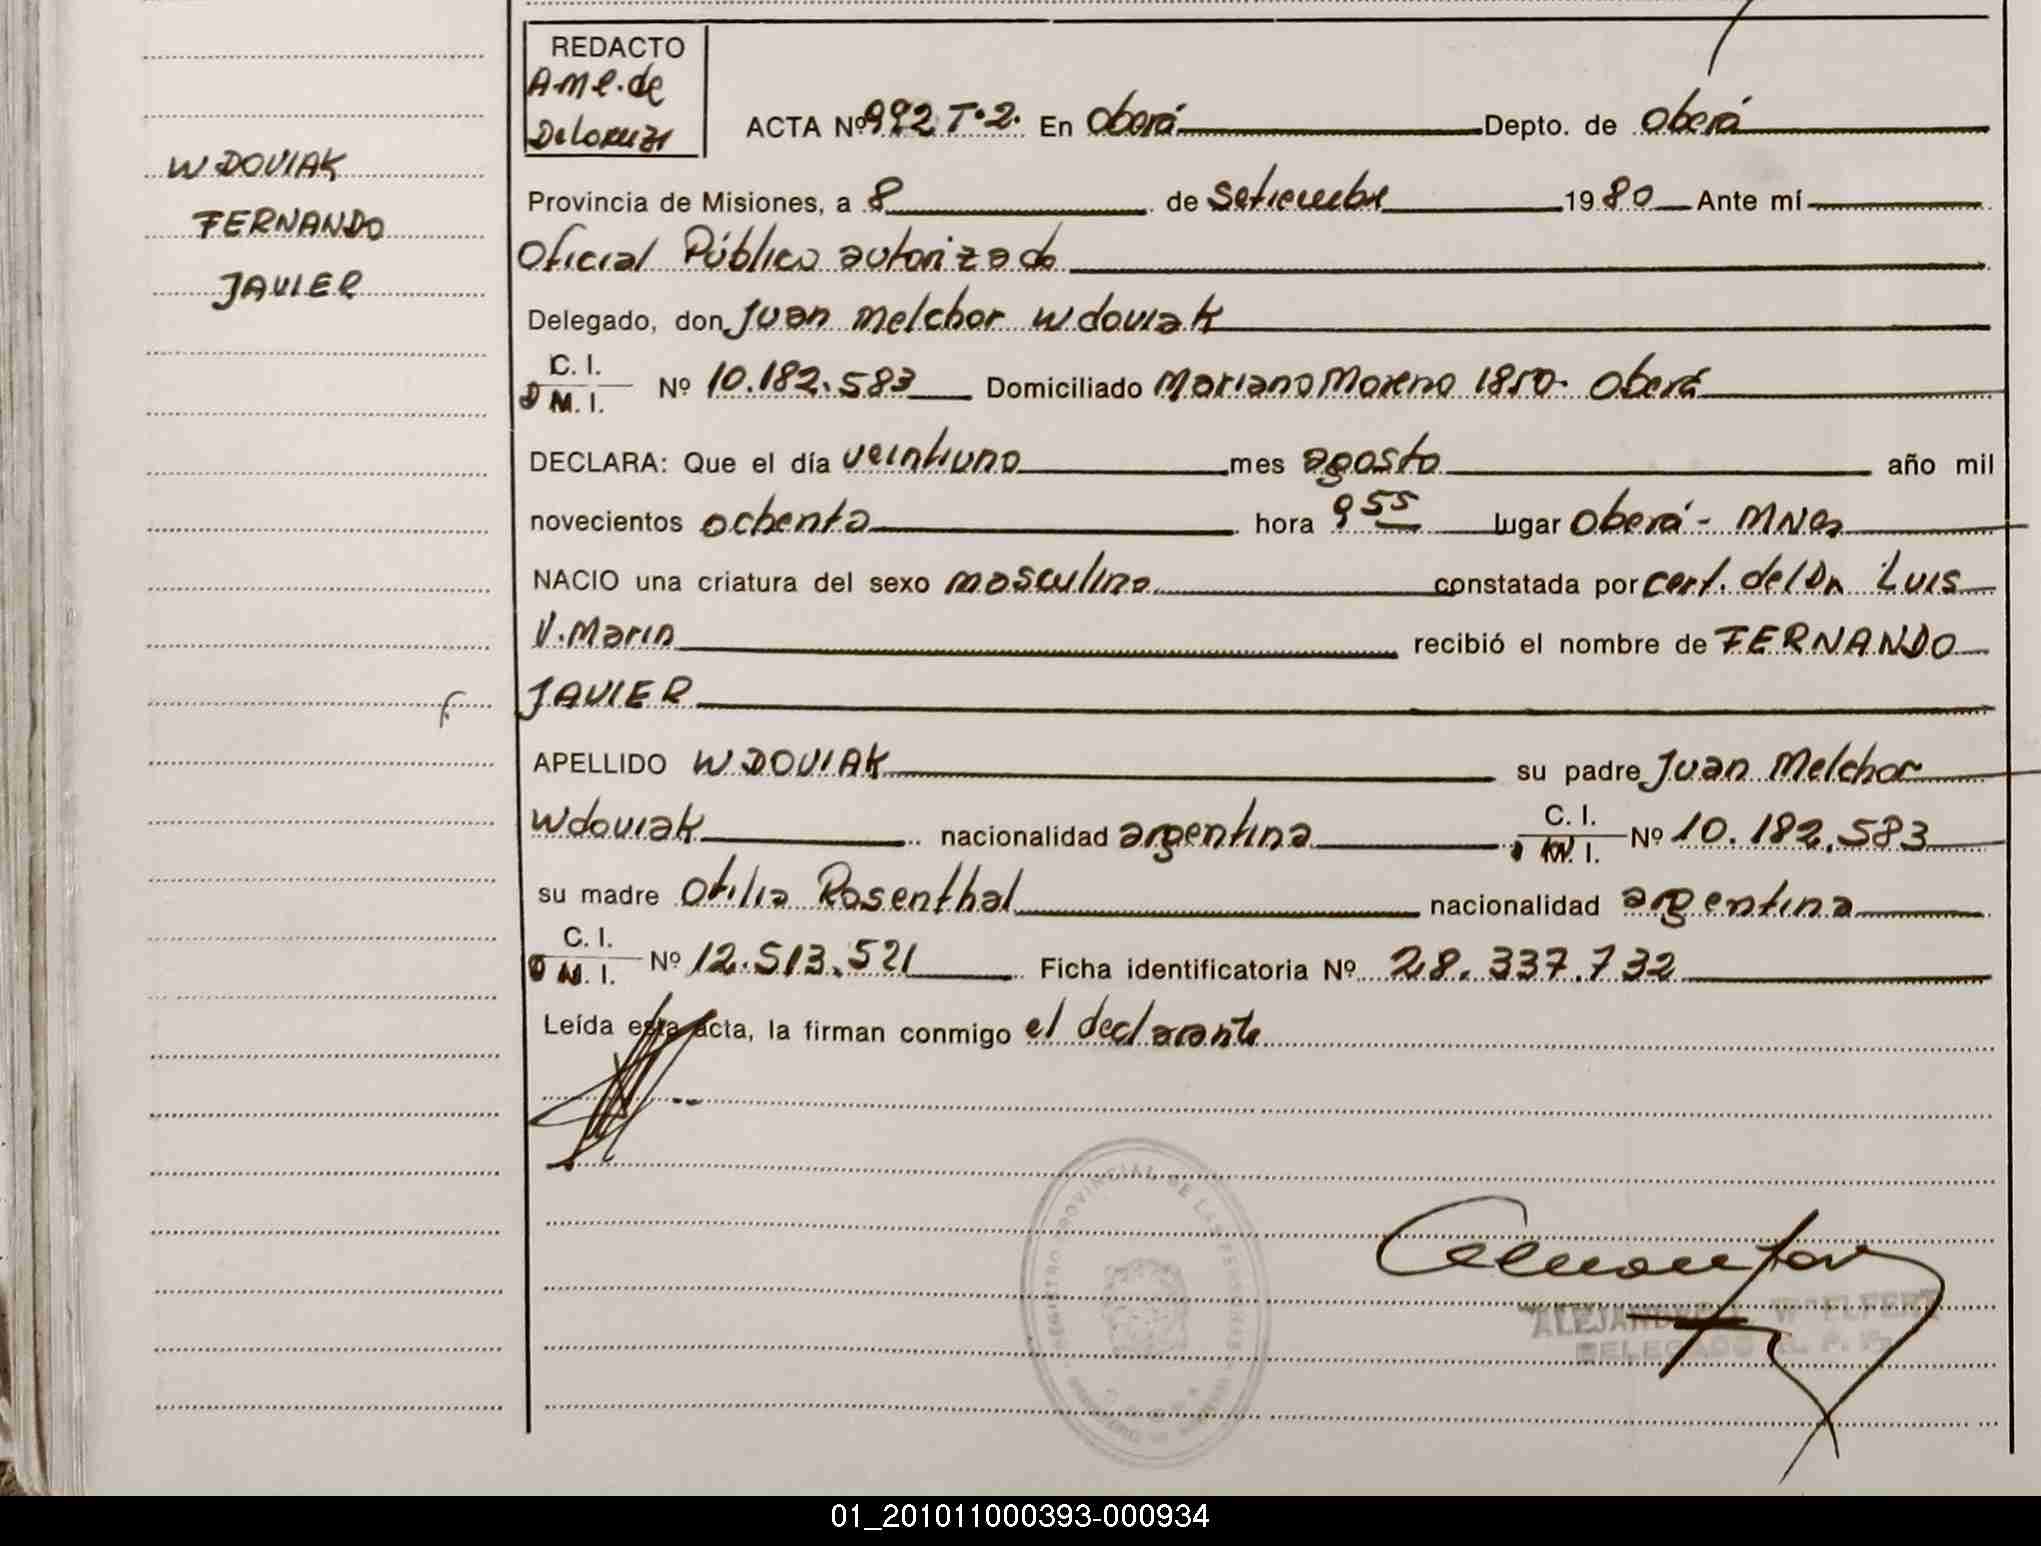 WDOVIAK
FERNANDO
JAVIER
REDACTO
A.M.L. de
ACTA Nº 992 T.2. En Oberá Depto. de Oberá
Provincia de Misiones, a 8 de Setiembre 1980 Ante mí
Oficial Público autorizado
Delegado, don Juan Melchor Wdoviak
C. I.
D M. I. Nº 10.182.583 Domiciliado Mariano Moreno 1850. Oberá
DECLARA: Que el día veintiuno mes agosto año mil
novecientos ochenta hora 9 55 lugar Oberá - Mnes
NACIO una criatura del sexo masculino constatada por cert. del Dr. Luis
V. Marin recibió el nombre de FERNANDO
JAVIER
APELLIDO WDOVIAK su padre Juan Melchor
Wdoviak nacionalidad argentina C. I. Nº 10.182.583
su madre Otilia Rosenthal nacionalidad argentina
C. I.
D M. I. Nº 12.513.521 Ficha identificatoria Nº 28.337.732
Leída esta acta, la firman conmigo el declarante
REGISTRO PROVINCIAL DE LAS PERSONAS
DELEGADO R. P. P.
01_201011000393-000934